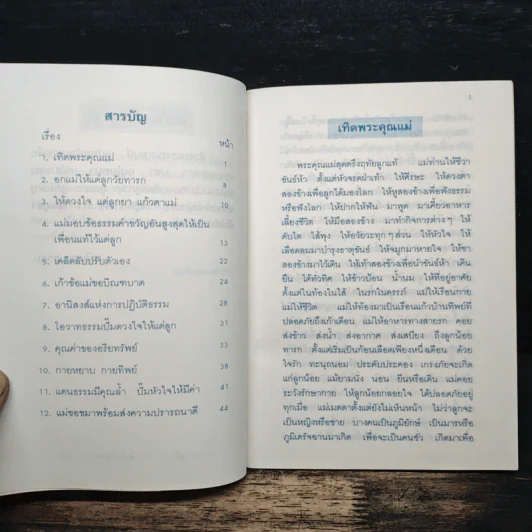 สารบัญ
เรื่อง หน้า
1. เทิดพระคุณแม่ 1
2. อกแม่ให้แด่ลูกวัยทารก 8
3. ให้ดวงใจ แด่ลูกยา แก้วตาแม่ 10
4. แม่มอบข้อธรรมคำขวัญอันสูงสุดให้เป็น
เพื่อนแท้ไว้แด่ลูก 13
5. เคล็ดลับปรับตัวเอง 22
6. เก้าข้อแม่ขอบิณฑบาต 24
7. อานิสงส์แห่งการปฏิบัติธรรม 28
8. โอวาทธรรมปั๊มดวงใจให้แด่ลูก 31
9. คุณค่าของอริยทรัพย์ 33
10. กายหยาบ กายทิพย์ 38
11. แดนธรรมมีคุณล้ำ ปั๊มหัวใจให้มีค่า 41
12. แม่ขอขมาพร้อมส่งความปรารถนาดี 44
1
เทิดพระคุณแม่
พระคุณแม่สุดตรึงฤทัยลูกแท้ แม่ท่านให้ชีวา
ขันธ์ห้า ตั้งแต่หัวจรดฝ่าเท้า ให้ศีรษะ ให้ดวงตา
สองข้างเพื่อลูกได้มองโลก ให้หูสองข้างเพื่อฟังธรรม
หรือฟังโลก ให้ปากให้ฟัน มาพูด มาเคี้ยวอาหาร
เลี้ยงชีวิต ให้มือสองข้าง มาทำกิจการต่างๆ ให้
ตับไต ไส้พุง ให้อวัยวะทุกๆส่วน ให้หัวใจ ให้
เลือดลมมาบำรุงธาตุขันธ์ ให้จมูกมาหายใจ ให้ขา
สองข้างมาไว้เดิน ให้เท้าสองข้างเพื่อนำขันธ์ห้า เดิน
ยืน ได้ทั่วทิศ ให้ข้าวป้อน น้ำนม ให้ที่อยู่อาศัย
ตั้งแต่ในท้องในไส้ ในรกในครรภ์ แม่ให้เรือนกาย
แม่ให้ชีวิต แม่ให้ท้องมาเป็นเรือนแก้วบ้านทิพย์ที่
ปลอดภัยถึงเก้าเดือน แม่ให้อาหารทางสายรก คอย
ส่งข้าว ส่งน้ำ ส่งอากาศ ส่งเสบียง ถึงลูกน้อย
ทารก ตั้งแต่เริ่มเป็นก้อนเลือดเพียงหนึ่งเดือน ด้วย
ใจรัก ทะนุถนอม ประคับประคอง เกรงภัยจะเกิด
แก่ลูกน้อย แม้ยามนั่ง นอน ยืนหรือเดิน แม่คอย
ระวังรักษากาย ให้ลูกน้อยกลอยใจ ได้ปลอดภัยอยู่
ทุกเมื่อ แม่เมตตาตั้งแต่ยังไม่เห็นหน้า ไม่ว่าลูกจะ
เป็นหญิงหรือชาย บางคนเป็นภูมิยักษ์ เป็นมารหรือ
ภูมิเดรัจฉานมาเกิด เพื่อจะเป็นคนชั่ว เกิดมาเพื่อ